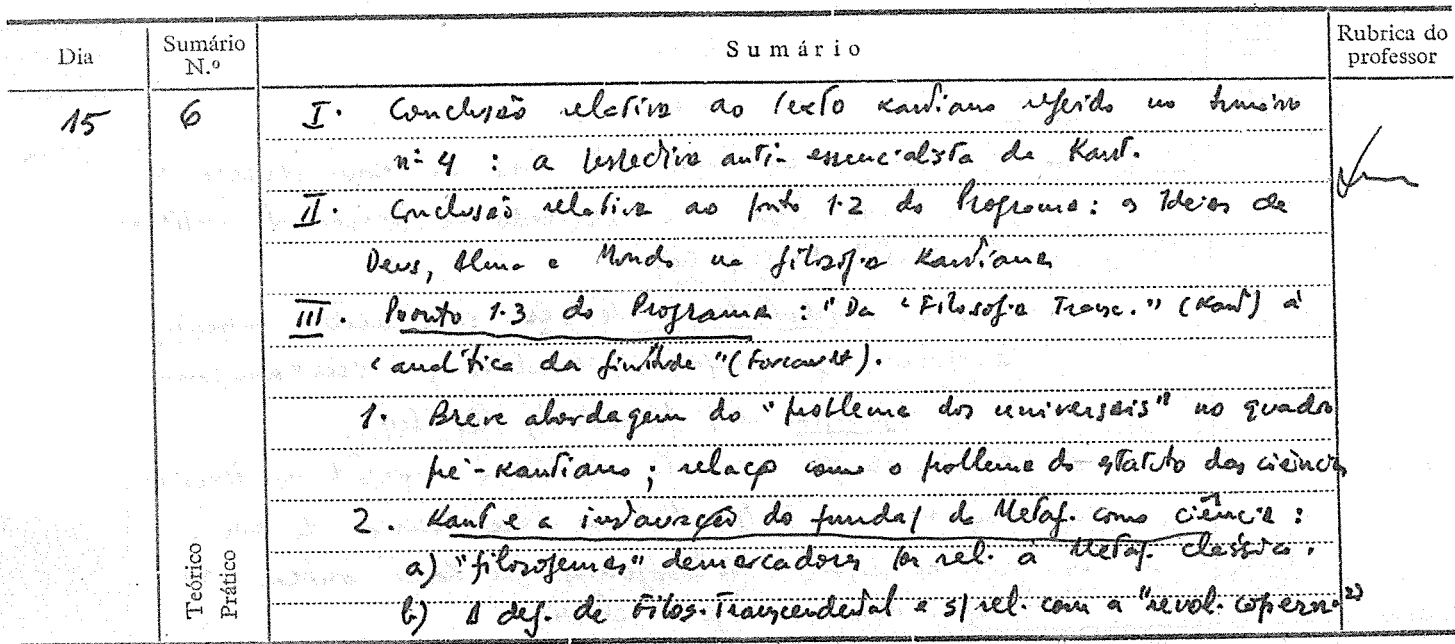 Dia Sumário N.º Sumário Rubrica do professor
15 6 I. Conclusão relativa ao texto kantiano referido no sumário
nº 4 : a perspectiva anti-essencialista de Kant.
II. Conclusão relativa ao ponto 1.2 do Programa: as Ideias de
Deus, Alma e Mundo na filosofia Kantiana
III. Ponto 1.3 do Programa : "Da "Filosofia Transc." (Kant) à
"analítica da finitude" (Foucault).
1. Breve abordagem do "problema dos universais" no quadro
pré-kantiano ; relaçº com o problema do estatuto das ciências
2. Kant e a instauração do funda/ da Metaf. como ciência :
a) "filosofemas" demarcadores em rel. à Metaf. clássica.
b) A def. de Filos. Transcendental e s/ rel. com a "revol. copern.ª"
Teórico
Prático